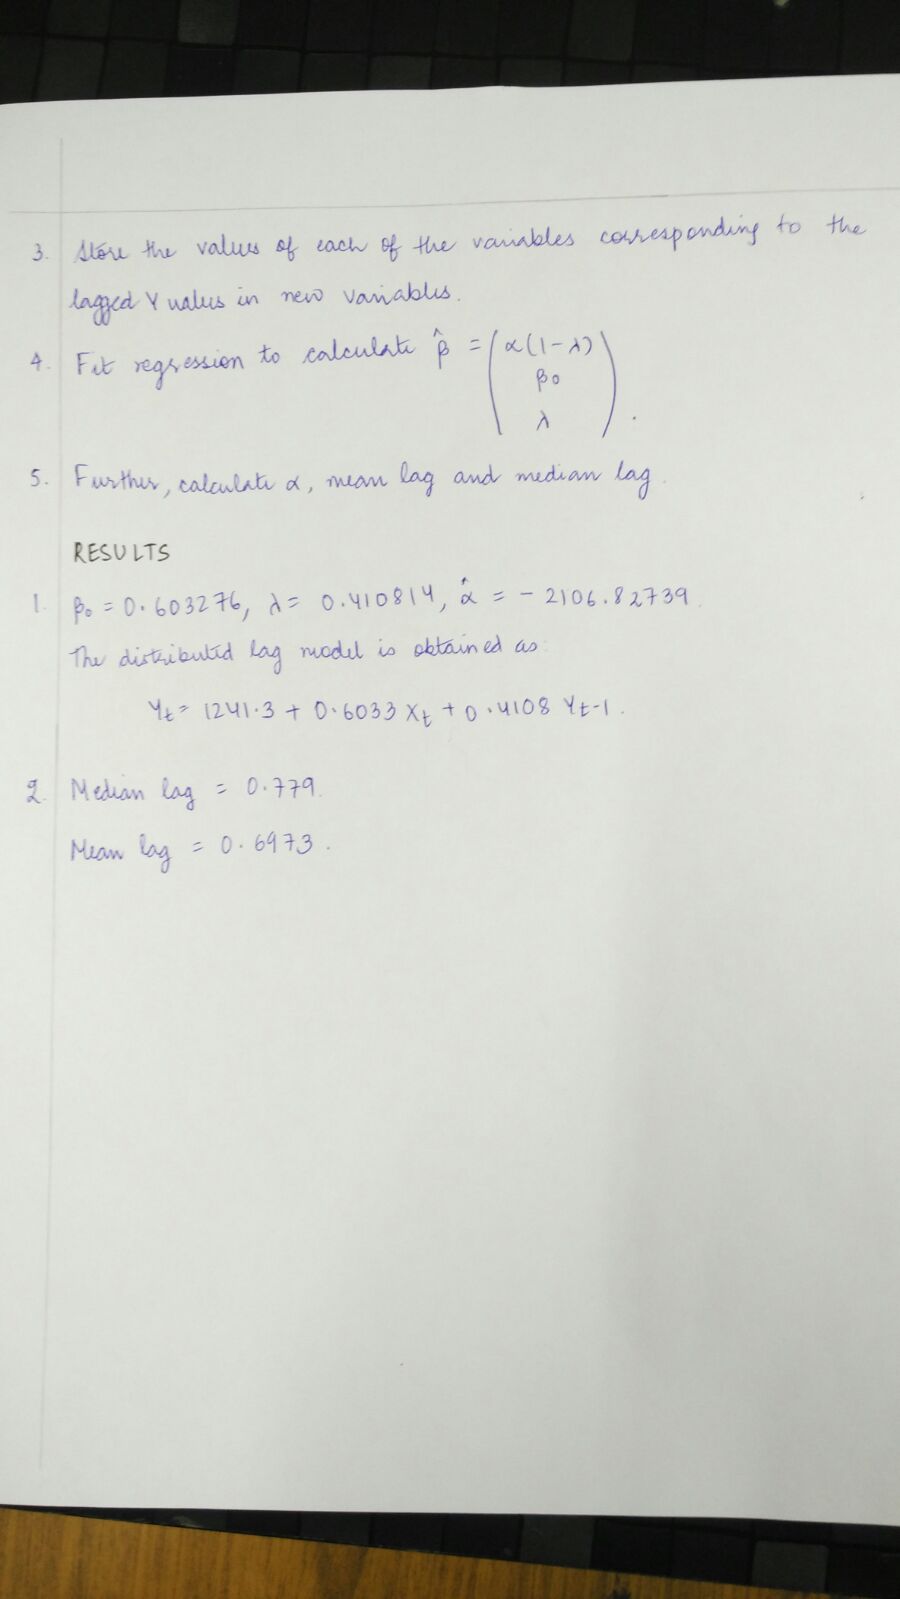 3. Store the values of each of the variables corresponding to the
lagged Y values in new variables.
4. Fit regression to calculate β̂ = ( α(1-λ)
β0
λ ) .
5. Further, calculate α, mean lag and median lag.
RESULTS
1. β0 = 0.603276, λ = 0.410814, α̂ = - 2106.82739.
The distributed lag model is obtained as:
Yt = 1241.3 + 0.6033 Xt + 0.4108 Yt-1.
2. Median lag = 0.779.
Mean lag = 0.6973.